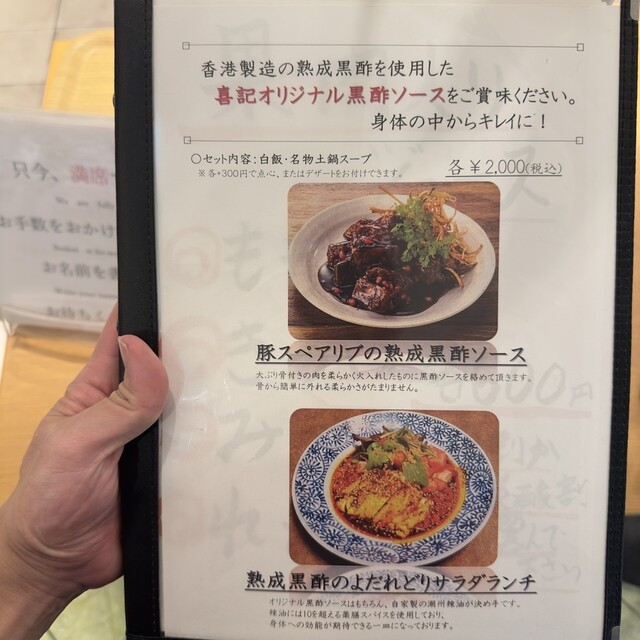 香港製造の熟成黒酢を使用した
喜記オリジナル黒酢ソースをご賞味ください。
身体の中からキレイに！
〇セット内容：白飯・名物土鍋スープ
※各+300円で点心、またはデザートをお付けできます。
各￥2,000(税込)
豚スペアリブの熟成黒酢ソース
大ぶり骨付きの肉を柔らかく火入れしたものに黒酢ソースを絡めて頂きます。
骨から簡単に外れる柔らかさがたまりません。
熟成黒酢のよだれどりサラダランチ
オリジナル黒酢ソースはもちろん、自家製の潮州辣油が決め手です。
辣油には10を超える薬膳スパイスを使用しており、
身体への効能が期待できる一皿になっております。
只今、満席
We are fully
お手数をおかけ
お名前を
お待ち